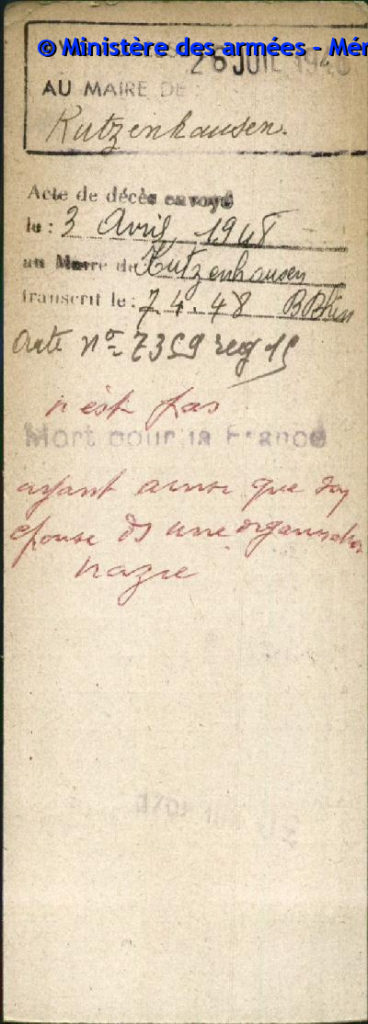 © Ministère des armées - Mé
26 JUIL 1946
AU MAIRE DE :
Kutzenhausen.
Acte de décès envoyé
le : 3 Avril 1948
au Maire de Kutzenhausen
transcrit le : 7.4.48 B Rhin
acte n° 7359 reg 15
n'est pas
Mort pour la France
ayant ainsi que son
épouse ds une organisation
nazie